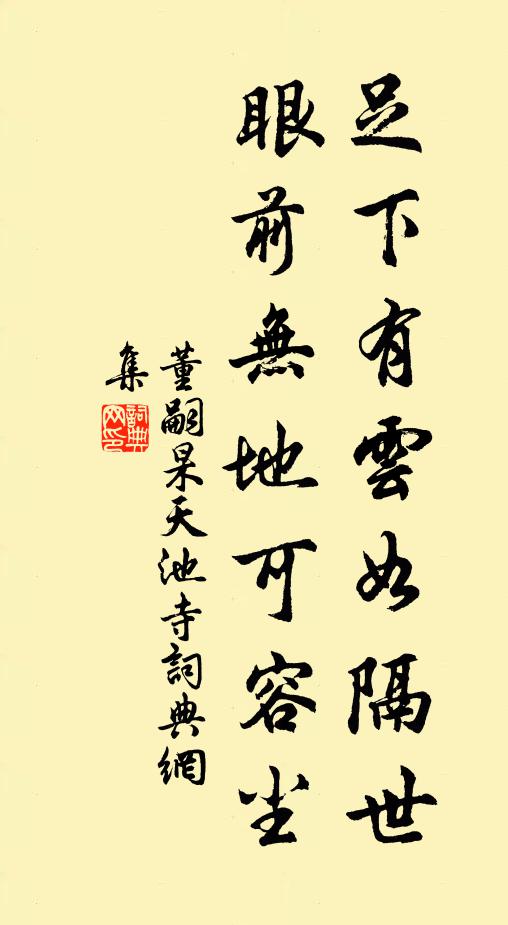 足下有雲如隔世
眼前無地可容尘
董嗣杲天池寺詞典網
集
詞典
网印